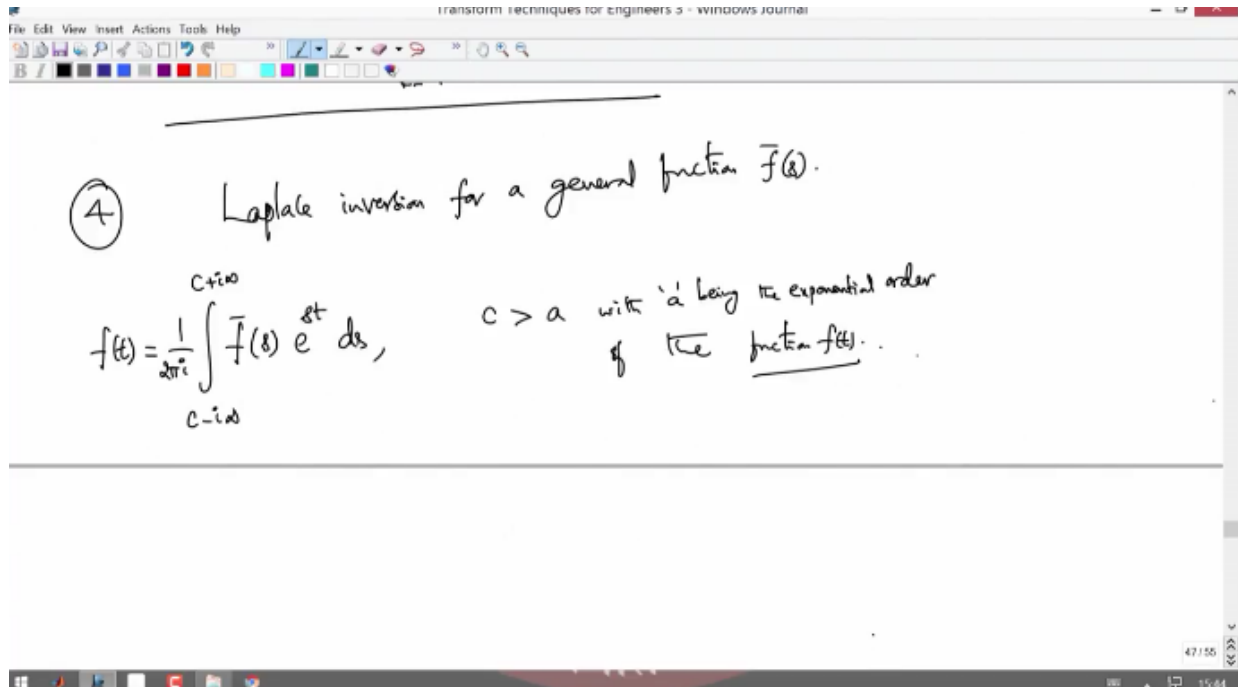 Transform Techniques for Engineers 3 - Windows Journal
File Edit View Insert Actions Tools Help
B I
4 Laplace inversion for a general function f̄(s).
f(t) = 1/2πi ∫_{c-i∞}^{c+i∞} f̄(s) e^{st} ds, c > a with 'a' being the exponential order
of the function f(t).
47/55
15:44